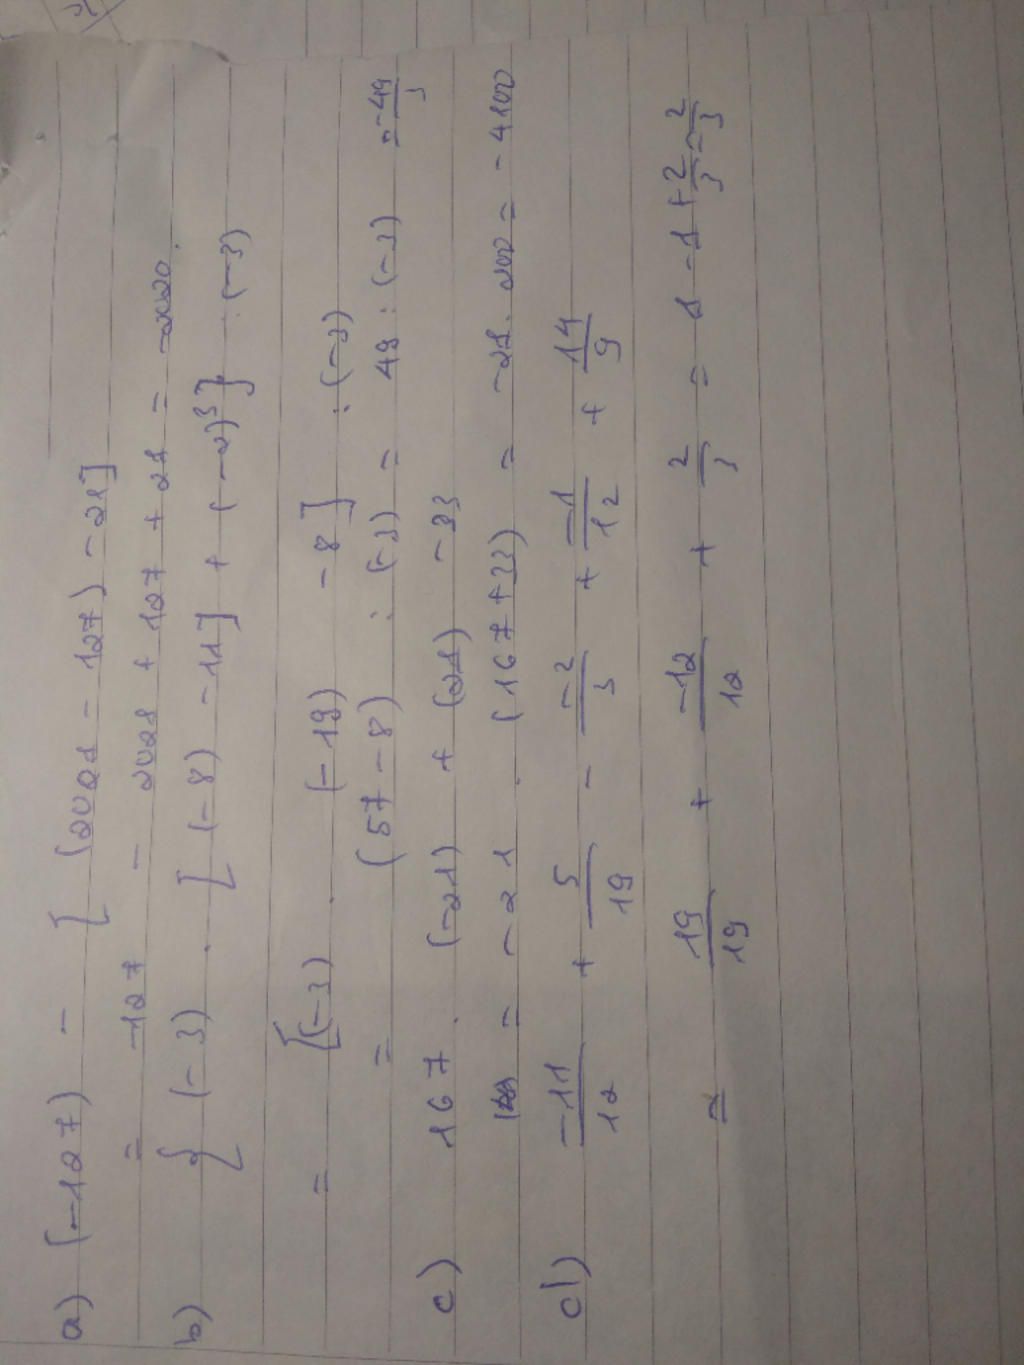 a) (-127) - [(2021 - 127) - 21]
= -127 - 2021 + 127 + 21 = -2020.
b) {(-3) . [(-8) - 11] + (-2)³} : (-3)
= [(-3) . (-19) - 8] : (-3)
= (57 - 8) : (-3) = 49 : (-3) = -49/3
c) 167 . (-21) + (21) - 33
= -21 . (167 + 33) = -21 . 200 = -4100
d) -11/12 + 5/19 - -2/3 + -1/12 + 14/9
= 19/19 + -12/12 + 2/3 = 1 - 1 + 2/3 = 2/3